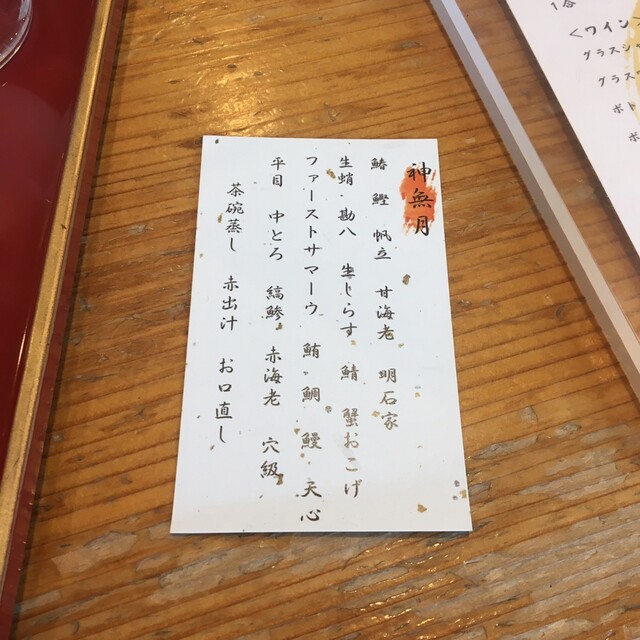 神無月
鰆 鰹 帆立 甘海老 明石家
生蛸 勘八 生じらす 鯖 蟹おこげ
ファーストサマーウ 鮪 鯛 鰻 天心
平目 中とろ 縞鯵 赤海老 穴級
茶碗蒸し 赤出汁 お口直し
1合
<ワイン
グラス
グラス
ボト
ボ